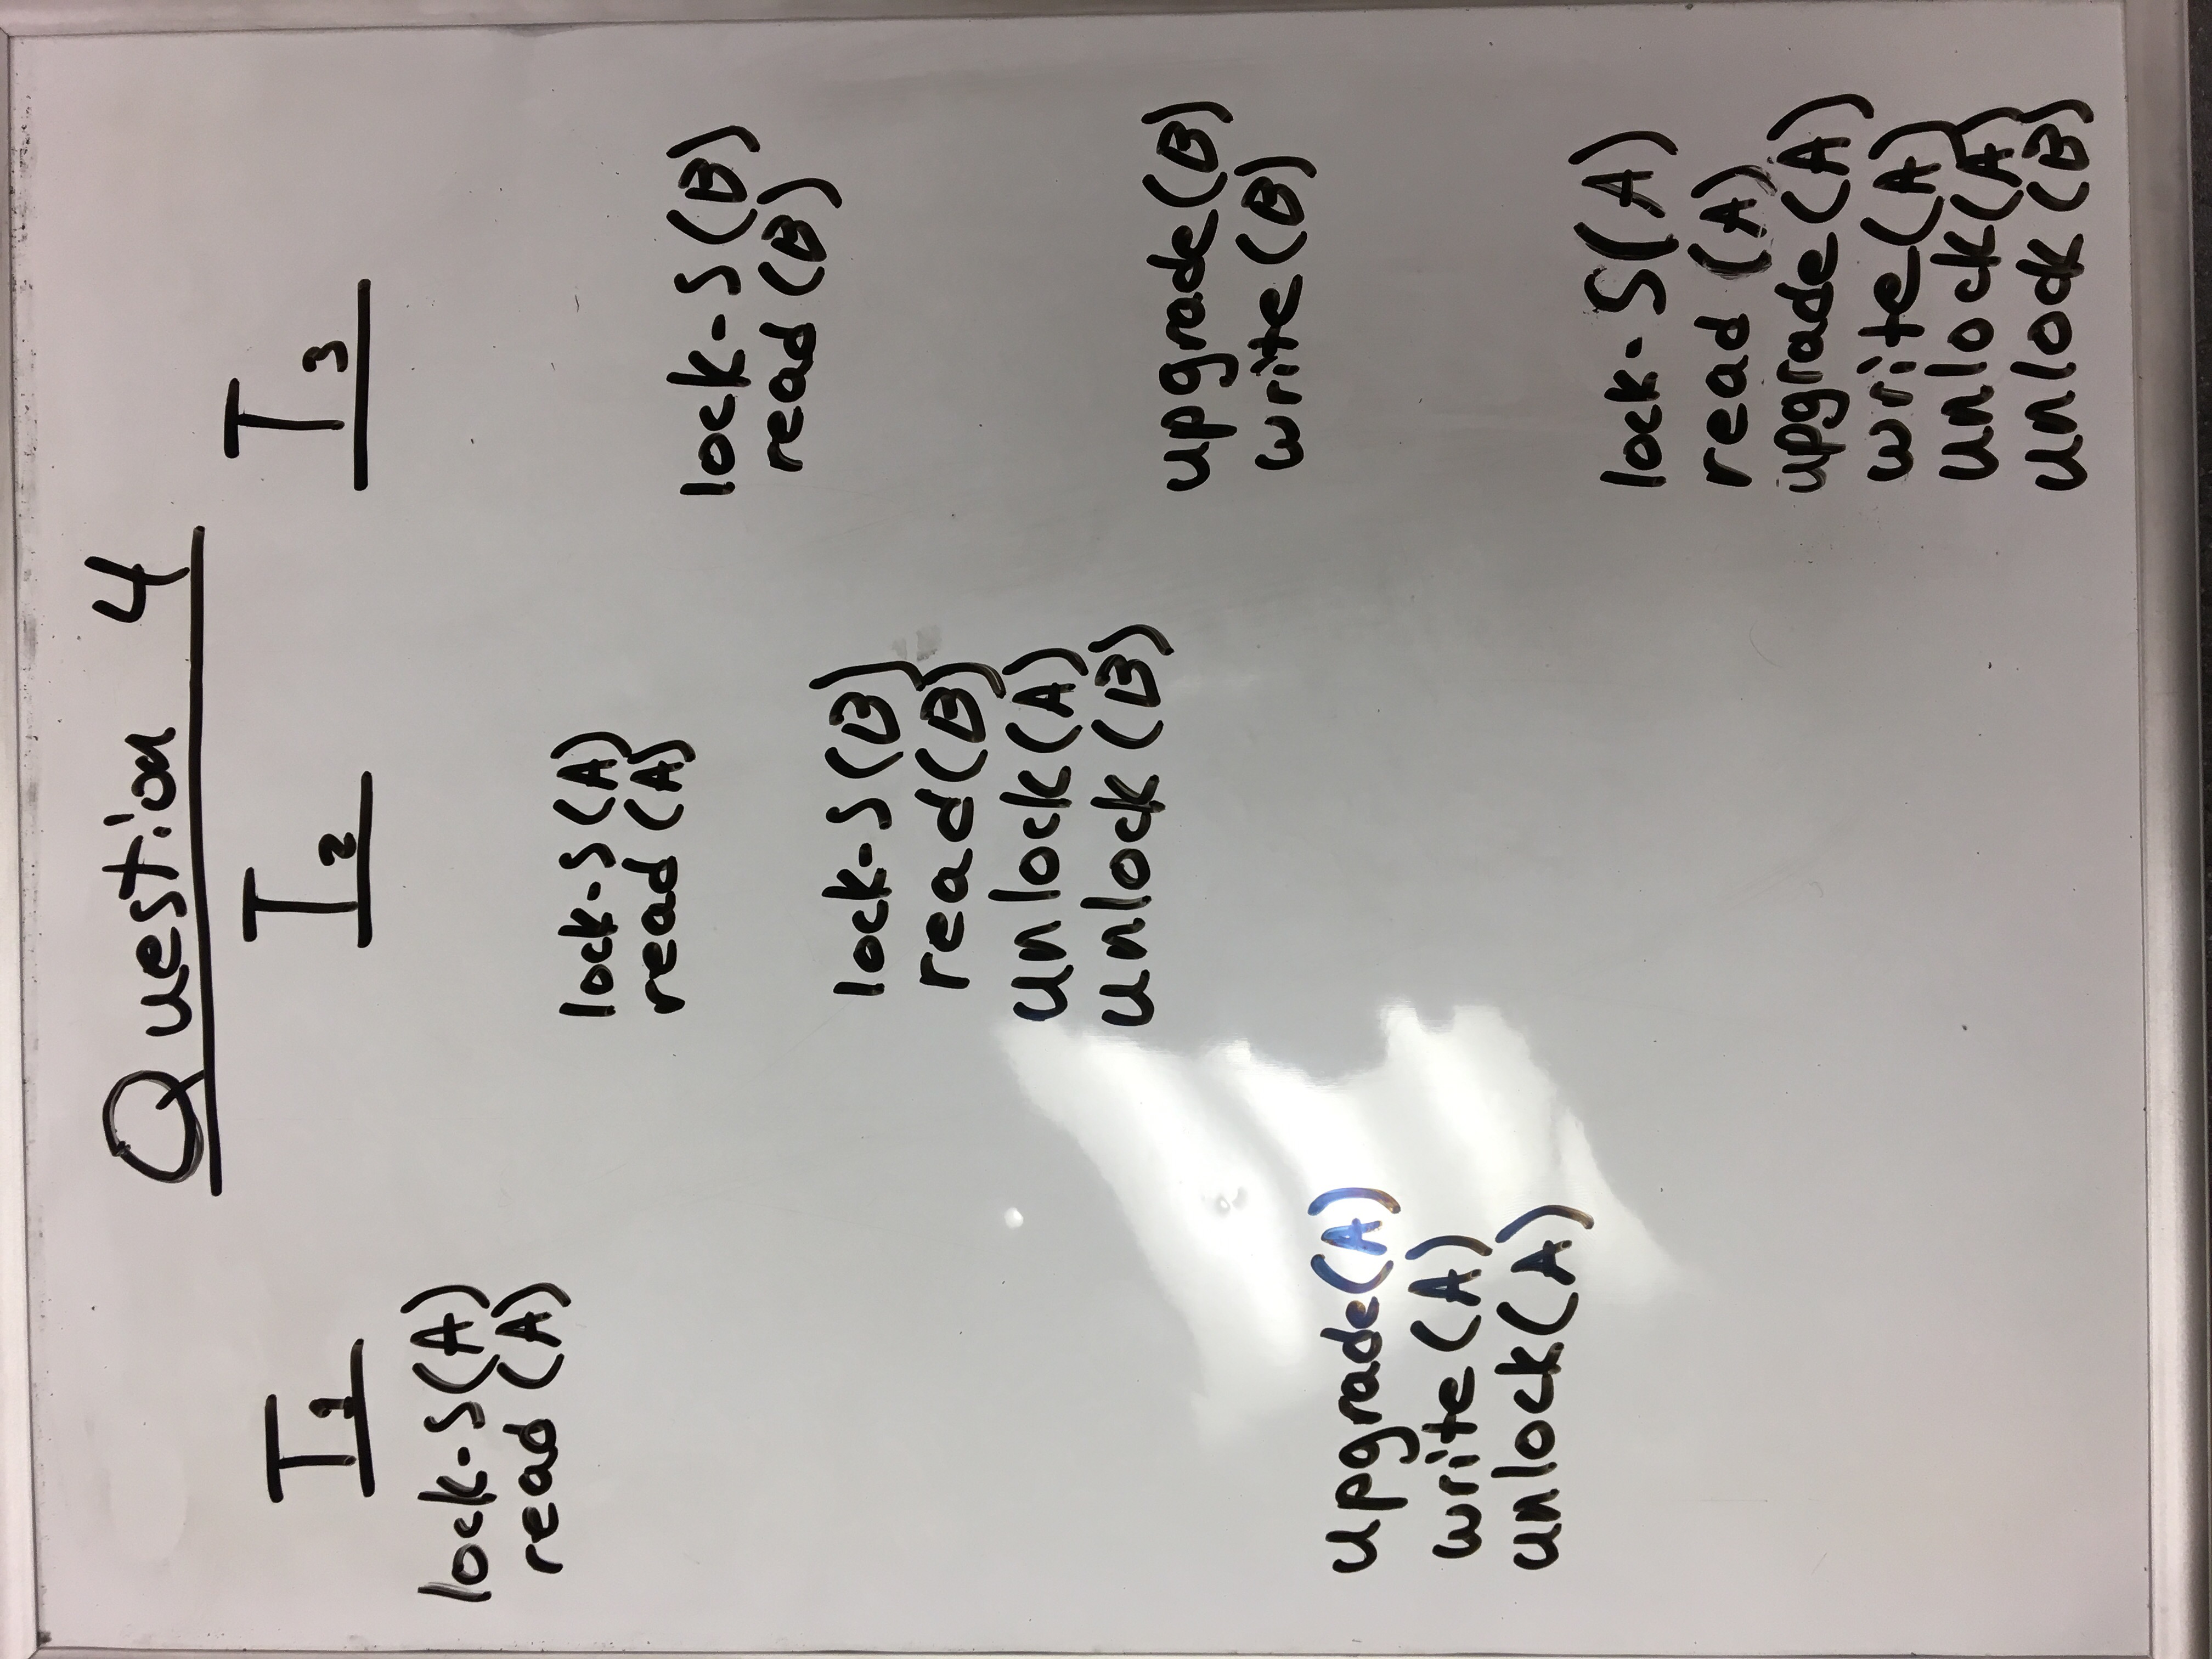 Question 4
T1 T2 T3
lock-S(A)
read (A)
lock-S (A)
read (A)
lock-S(B)
read (B)
lock-S(B)
read(B)
unlock(A)
unlock(B)
upgrade(B)
write(B)
upgrade(A)
write(A)
unlock(A)
lock-S(A)
read (A)
upgrade(A)
write(A)
unlock(A)
unlock(B)